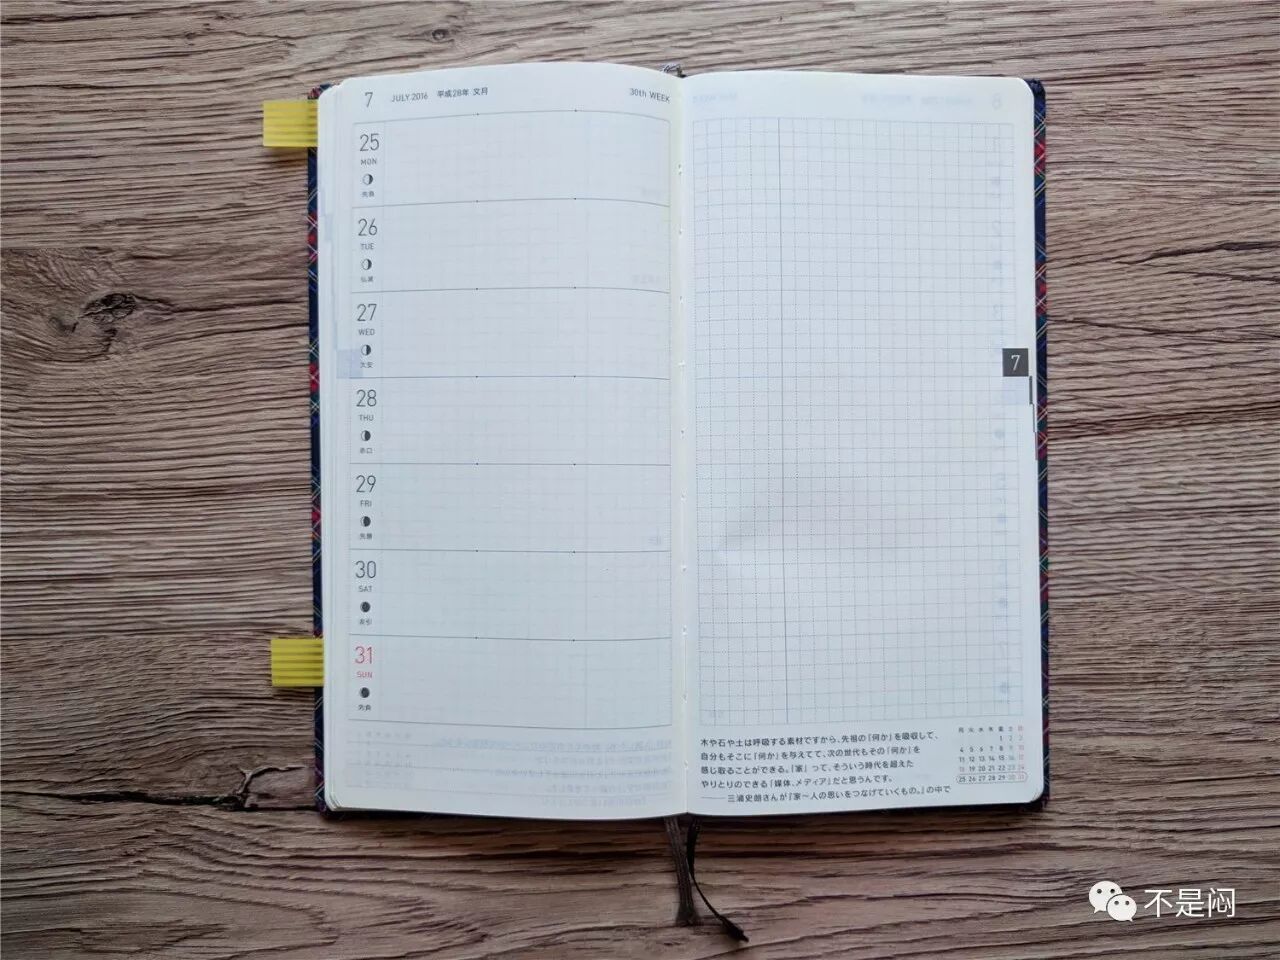 7 JULY 2016 平成28年 文月 30th WEEK
25
MON
先負
26
TUE
仏滅
27
WED
大安
28
THU
赤口
29
FRI
先勝
30
SAT
友引
31
SUN
先負
7
木や石や土は呼吸する素材ですから、先祖の『何か』を吸収して、
自分もそこに『何か』を与えてて、次の世代もその『何か』を
感じ取ることができる。『家』って、そういう時代を超えた
やりとりのできる『媒体、メディア』だと思うんです。
——三浦史朗さんが『家〜人の思いをつなげていくもの。』の中で
月 火 水 木 金 土 日
1 2 3
4 5 6 7 8 9 10
11 12 13 14 15 16 17
18 19 20 21 22 23 24
25 26 27 28 29 30 31
不是闷